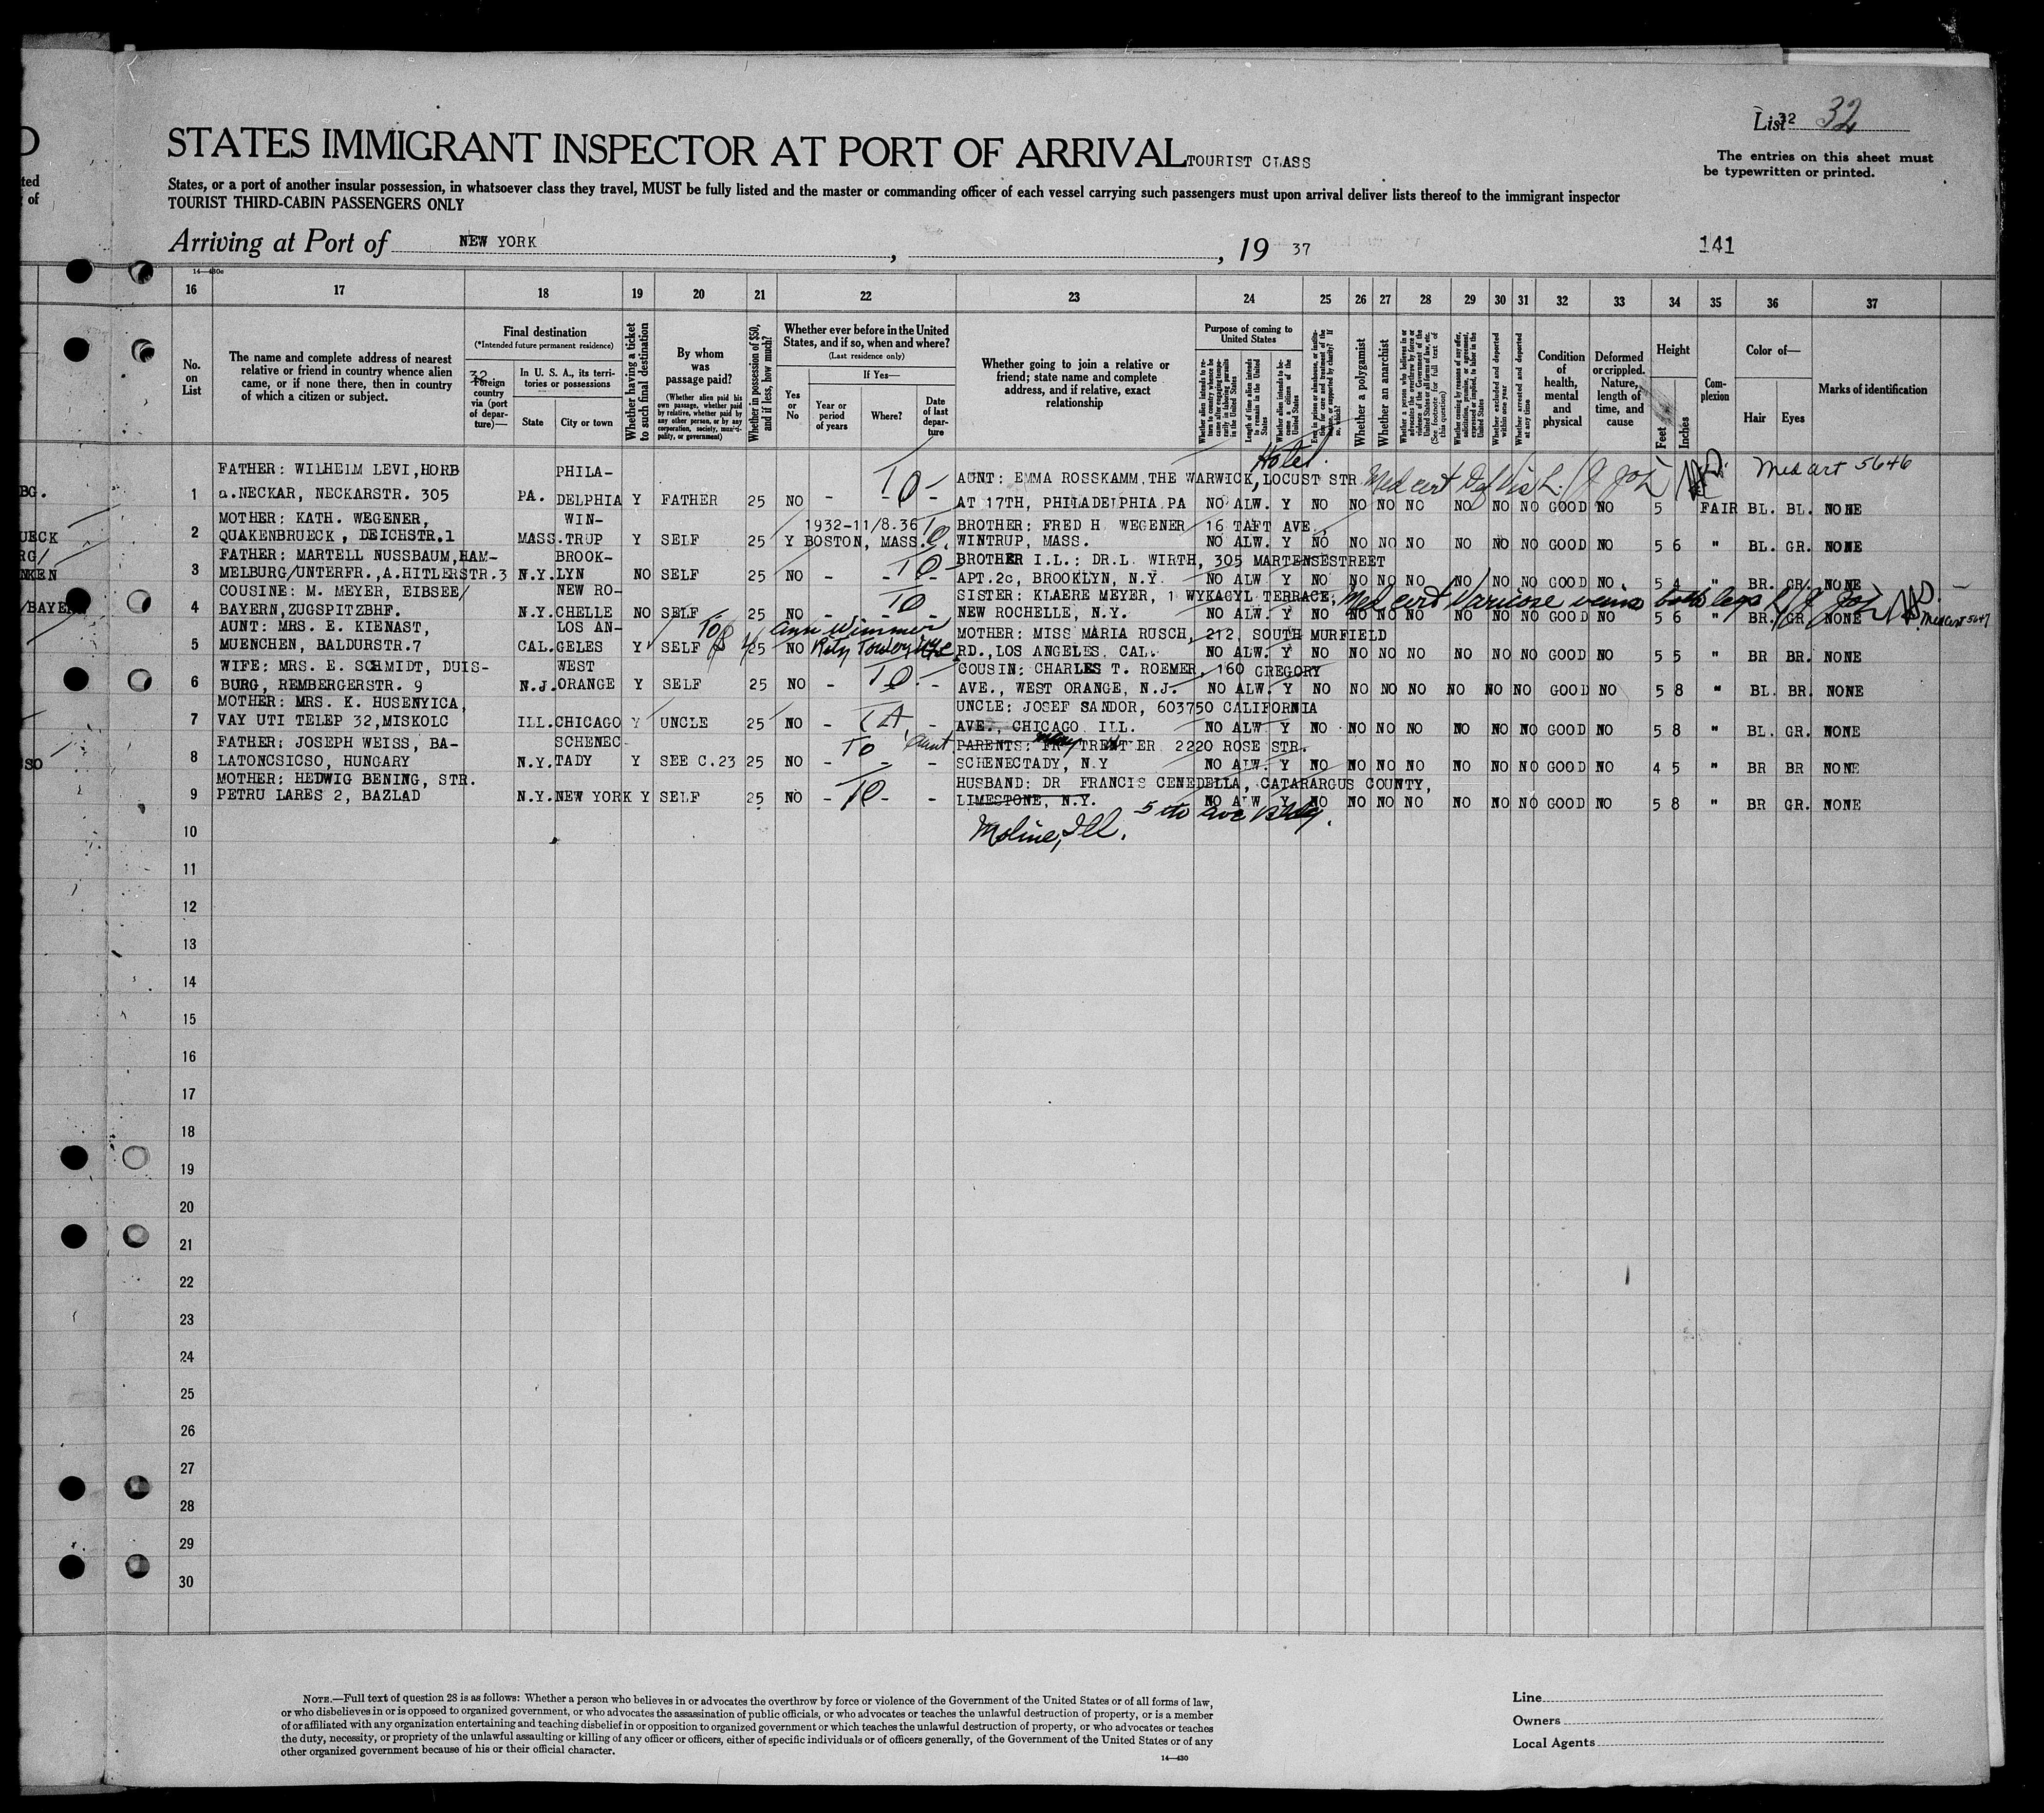 List 32 32
STATES IMMIGRANT INSPECTOR AT PORT OF ARRIVAL TOURIST CLASS
The entries on this sheet must
be typewritten or printed.
States, or a port of another insular possession, in whatsoever class they travel, MUST be fully listed and the master or commanding officer of each vessel carrying such passengers must upon arrival deliver lists thereof to the immigrant inspector
TOURIST THIRD-CABIN PASSENGERS ONLY
Arriving at Port of NEW YORK , , 19 37 141
16 17 18 19 20 21 22 23 24 25 26 27 28 29 30 31 32 33 34 35 36 37
No. on List
The name and complete address of nearest
relative or friend in country whence alien
came, or if none there, then in country
of which a citizen or subject.
Final destination
(*Intended future permanent residence)
32
Foreign country via (port of departure)—
In U. S. A., its territories or possessions
State
City or town
Whether having a ticket to such final destination
By whom was passage paid?
(Whether alien paid his own passage, whether paid by relative, whether paid by any other person, or by any corporation, society, municipality, or government)
Whether in possession of $50, and if less, how much?
Whether ever before in the United
States, and if so, when and where?
(Last residence only)
Yes or No
If Yes—
Year or period of years
Where?
Date of last departure
Whether going to join a relative or
friend; state name and complete
address, and if relative, exact
relationship
Purpose of coming to United States
Whether a polygamist
Whether an anarchist
Condition of health, mental and physical
Deformed or crippled. Nature, length of time, and cause
Height
Feet
Inches
Complexion
Color of—
Hair
Eyes
Marks of identification
FATHER: WILHELM LEVI, HORB PHILA- TO Hotel. Med cert 5646
1 a.NECKAR, NECKARSTR. 305 PA. DELPHIA Y FATHER 25 NO - - - AUNT: EMMA ROSSKAMM, THE WARWICK, LOCUST STR
AT 17TH, PHILADELPHIA PA NO ALW. Y NO NO NO NO NO NO NO GOOD NO 5 FAIR BL. BL. NONE
MOTHER: KATH. WEGENER, WIN- 1932-11/8.36 BROTHER: FRED H. WEGENER 16 TAFT AVE.
2 QUAKENBRUECK, DEICHSTR.1 MASS. TRUP Y SELF 25 Y BOSTON, MASS. WINTRUP, MASS. NO ALW. Y NO NO NO NO NO NO NO GOOD NO 5 6 " BL. GR. NONE
FATHER: MARTELL NUSSBAUM, HAM- BROOK- TO BROTHER I.L.: DR.L. WIRTH, 305 MARTENSESTREET
3 MELBURG/UNTERFR., A.HITLERSTR.3 N.Y. LYN NO SELF 25 NO - - - APT.2c, BROOKLYN, N.Y. NO ALW Y NO NO NO NO NO NO NO GOOD NO 5 4 " BR. GR. NONE
COUSINE: M. MEYER, EIBSEE/ NEW RO- TO SISTER: KLAERE MEYER, 1 WYKAGYL TERRACE. Med cert Varicose veins both legs
4 BAYERN, ZUGSPITZBHF. N.Y. CHELLE NO SELF 25 NO - - - NEW ROCHELLE, N.Y. NO ALW. Y NO NO NO NO NO NO NO GOOD NO 5 6 " BR. GR. NONE Med cert 5647
AUNT: MRS. E. KIENAST, LOS AN- TO Ann Wimmer MOTHER: MISS MARIA RUSCH, 212, SOUTH MURFIELD
5 MUENCHEN, BALDURSTR.7 CAL. GELES Y SELF 25 NO RD., LOS ANGELES, CAL. NO ALW. Y NO NO NO NO NO NO NO GOOD NO 5 5 " BR BR. NONE
WIFE: MRS. E. SCHMIDT, DUIS- WEST TO COUSIN: CHARLES T. ROEMER, 160 GREGORY
6 BURG, REMBERGERSTR. 9 N.J. ORANGE Y SELF 25 NO - - AVE., WEST ORANGE, N.J. NO ALW. Y NO NO NO NO NO NO NO GOOD NO 5 8 " BL. BR. NONE
MOTHER: MRS. K. HUSENYICA, UNCLE: JOSEF SANDOR, 603750 CALIFORNIA
7 VAY UTI TELEP 32, MISKOLC ILL. CHICAGO Y UNCLE 25 NO - - AVE., CHICAGO ILL. NO ALW Y NO NO NO NO NO NO NO GOOD NO 5 8 " BL. GR. NONE
FATHER: JOSEPH WEISS, BA- SCHENEC- TO Aunt PARENTS: 2220 ROSE STR.
8 LATONCSICSO, HUNGARY N.Y. TADY Y SEE C.23 25 NO - - - SCHENECTADY, N.Y NO ALW. Y NO NO NO NO NO NO NO GOOD NO 4 5 " BR BR NONE
MOTHER: HEDWIG BENING, STR. HUSBAND: DR FRANCIS CENEDELLA, CATARARGUS COUNTY,
9 PETRU LARES 2, BAZLAD N.Y. NEW YORK Y SELF 25 NO - TO - - LIMESTONE, N.Y. NO ALW Y NO NO NO NO NO NO NO GOOD NO 5 8 " BR GR. NONE
10 Moline, Ill. 5th Ave Bldg.
11
12
13
14
15
16
17
18
19
20
21
22
23
24
25
26
27
28
29
30
NOTE.—Full text of question 28 is as follows: Whether a person who believes in or advocates the overthrow by force or violence of the Government of the United States or of all forms of law,
or who disbelieves in or is opposed to organized government, or who advocates the assassination of public officials, or who advocates or teaches the unlawful destruction of property, or is a member
of or affiliated with any organization entertaining and teaching disbelief in or opposition to organized government or which teaches the unlawful destruction of property, or who advocates or teaches
the duty, necessity, or propriety of the unlawful assaulting or killing of any officer or officers, either of specific individuals or of officers generally, of the Government of the United States or of any
other organized government because of his or their official character.
14—430
Line
Owners
Local Agents